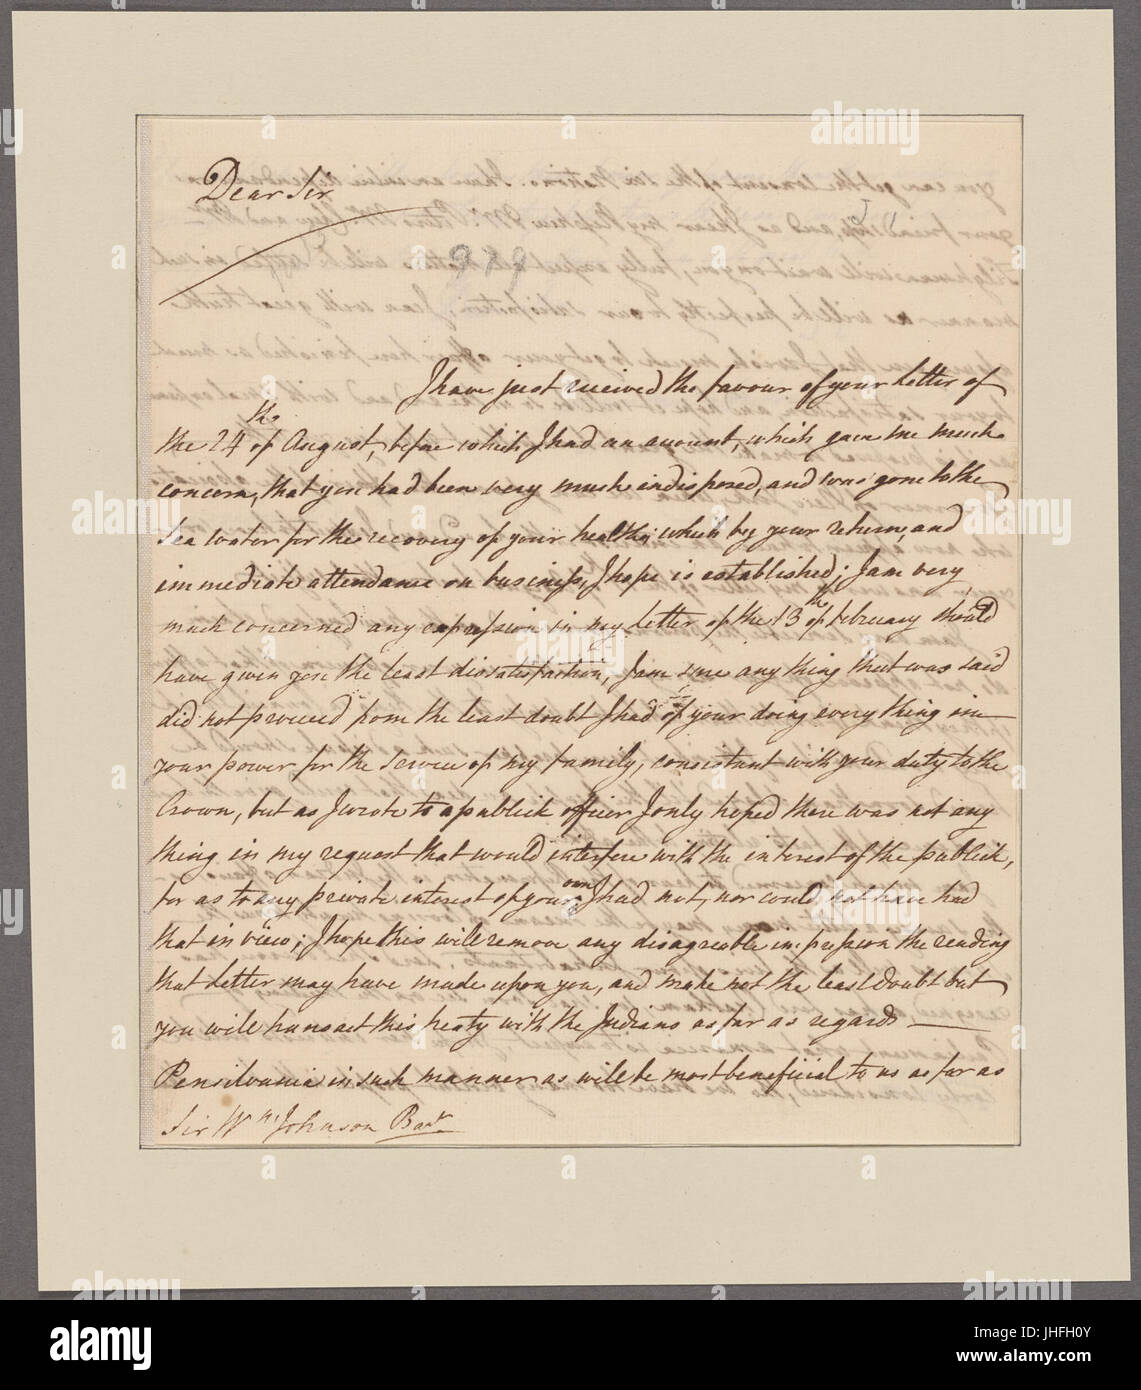 Dear Sir
I have just received the favour of your Letter of
the 24th of August, before which I had an account, which gave me much
concern, that you had been very much indisposed, and was gone to the
Sea Water for the recovery of your health, which by your return, and
immediate attendance on business, I hope is established; I am very
much concerned any expression in my Letter of the 13th of February should
have given you the least dissatisfaction, I am sure any thing that was said
did not proceed from the least doubt I had of your doing every thing in
your power for the Service of my family, consistant with your duty to the
Crown, but as I wrote to a publick officer I only hoped there was not any
thing in my request that would interfere with the interest of the publick,
for as to any private interest of your own I had not, nor could not have had
that in view; I hope this will remove any disagreeable impression the reading
that Letter may have made upon you, and make not the least Doubt but
you will transact this treaty with the Indians as far as regards
Pensilvania in such manner as will be most beneficial to us as far as
Sir Wm. Johnson Bart.
alamy
a
alamy stock photo
Image ID: JHFH0Y
www.alamy.com